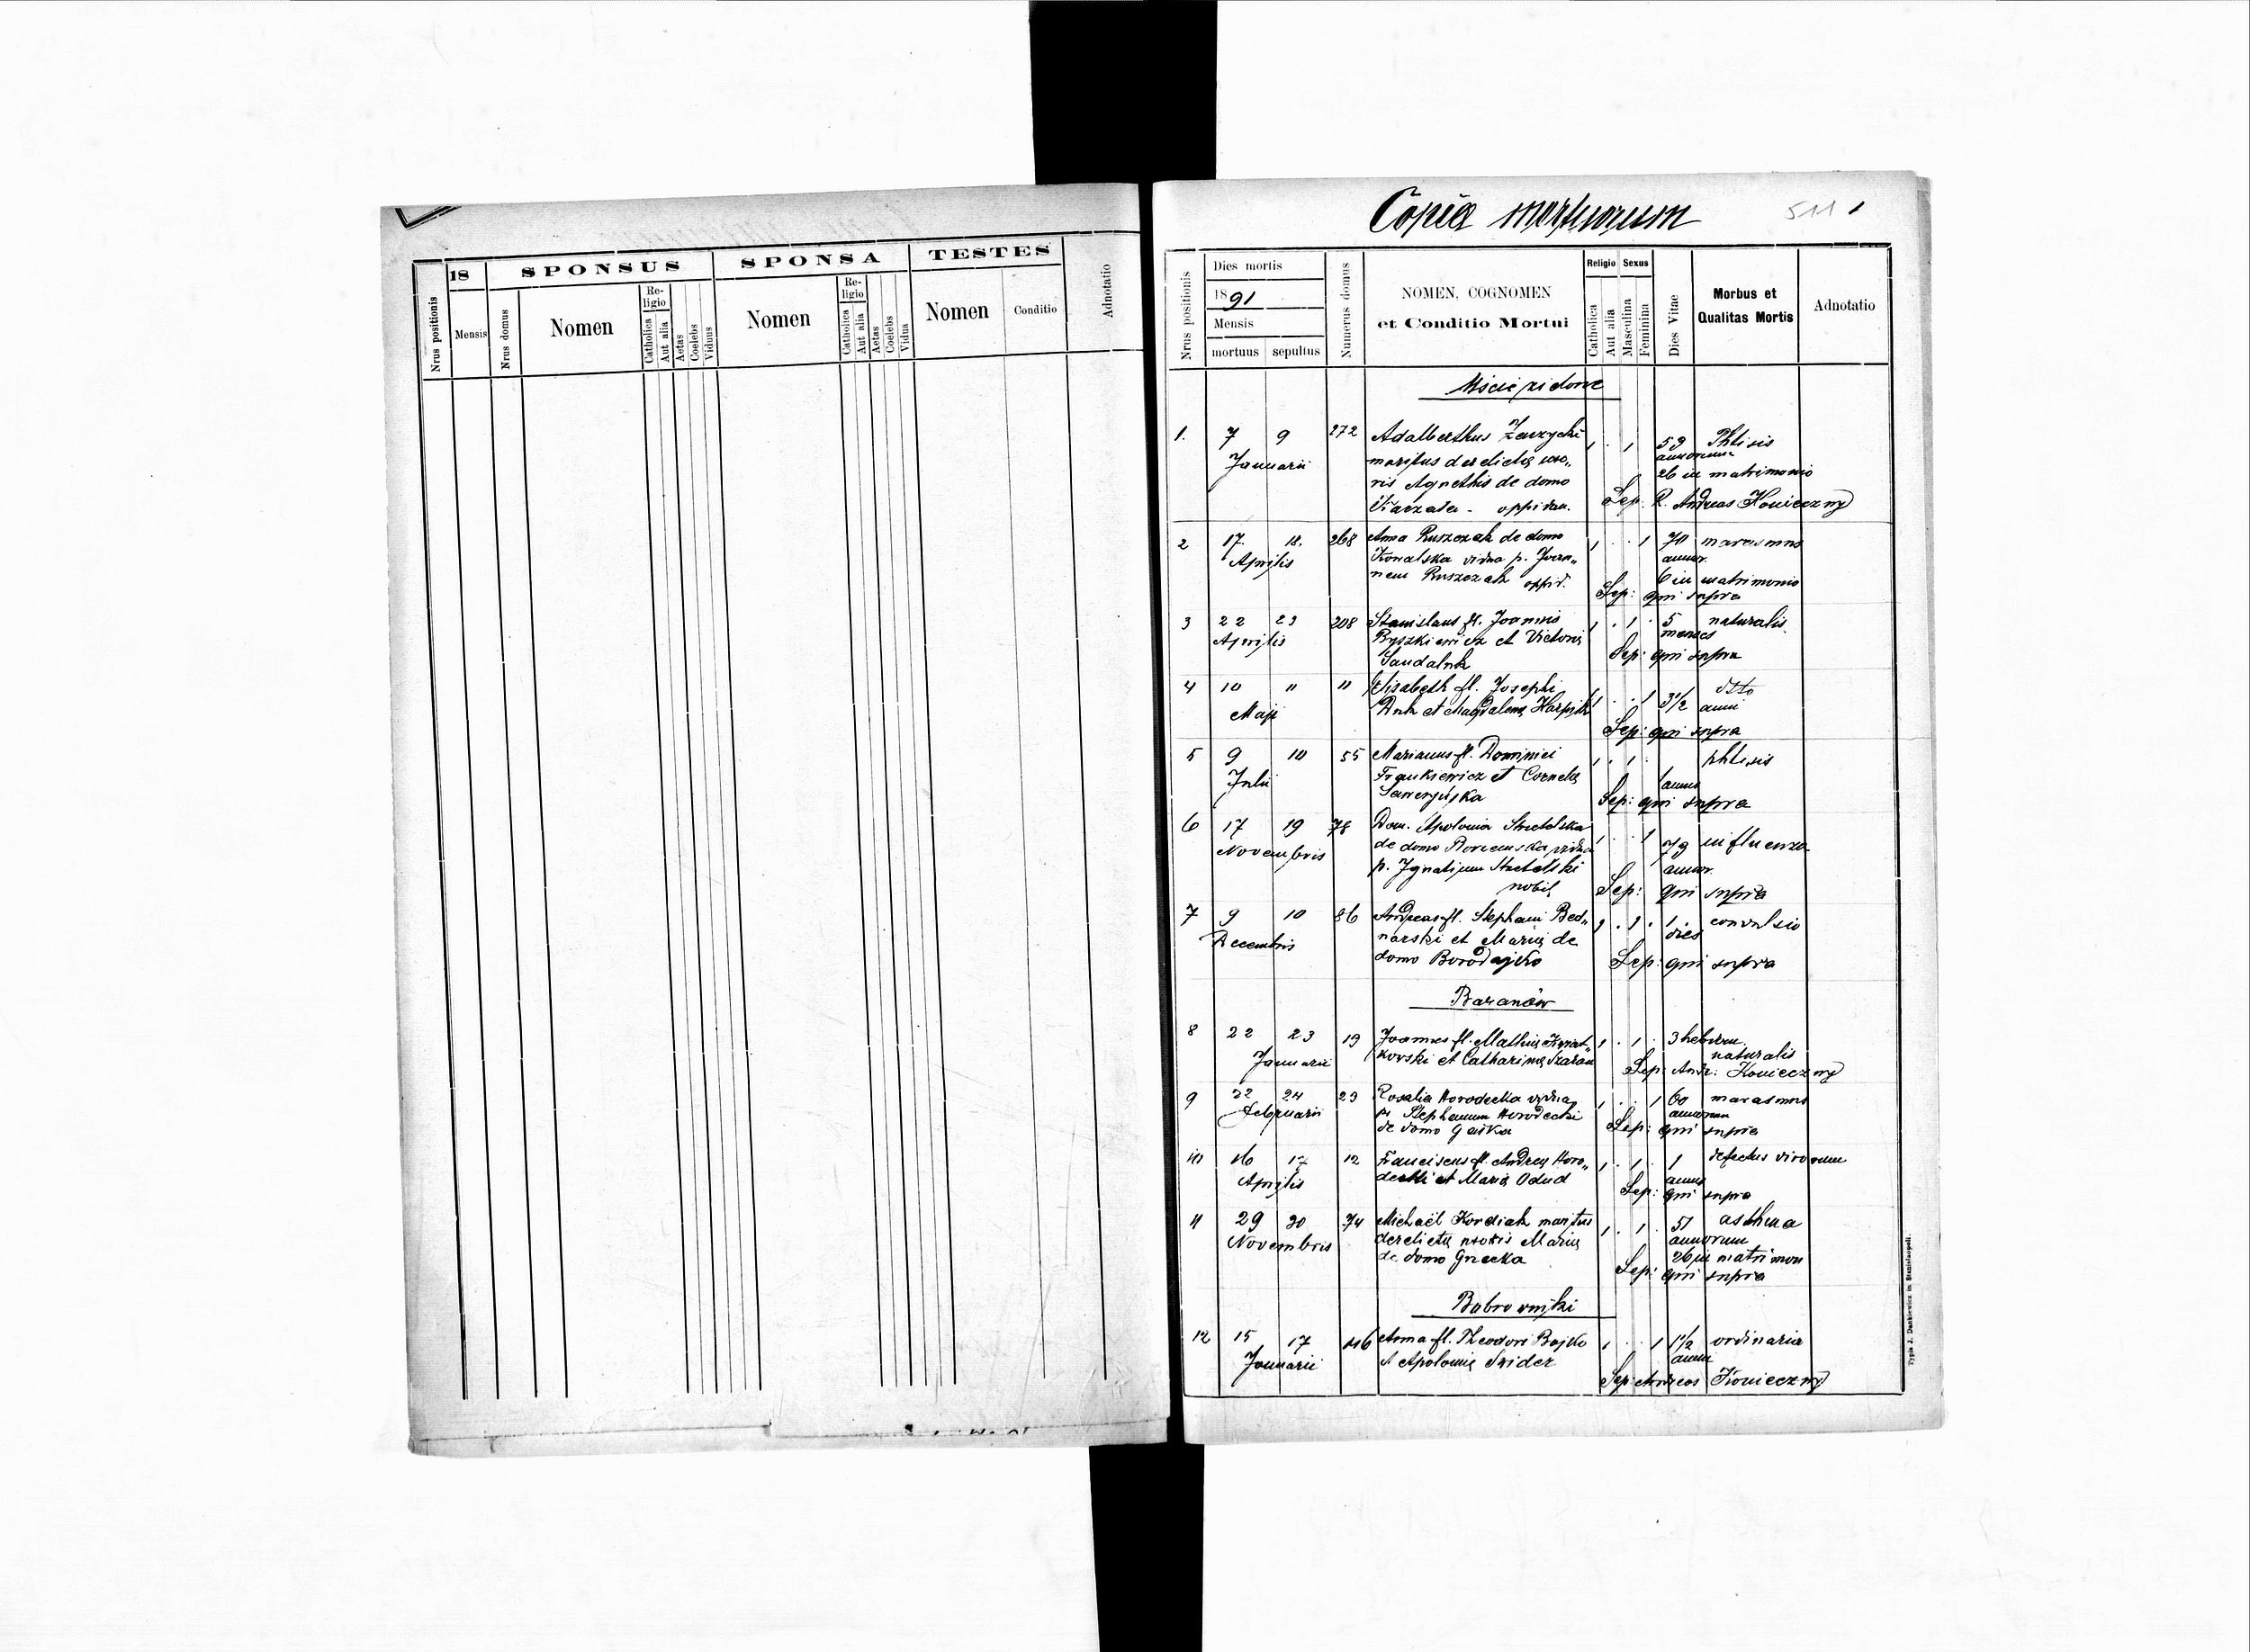 Nrus positionis
18
Mensis
SPONSUS
Nrus domus
Nomen
Re-
ligio
Catholica
Aut alia
Aetas
Coelebs
Viduus
SPONSA
Nomen
Re-
ligio
Catholica
Aut alia
Aetas
Coelebs
Vidua
TESTES
Nomen
Conditio
Adnotatio
Copia mortuorum
511
Nrus positionis
Dies mortis
1891
Mensis
mortuus sepultus
Numerus domus
NOMEN, COGNOMEN
et Conditio Mortui
Religio
Catholica
Aut alia
Sexus
Masculina
Feminina
Dies Vitae
Morbus et
Qualitas Mortis
Adnotatio
1. 7 9 272 Adalberthus 1 . 1 59 Phtisis
Januarii maritus derelictę uxo„ annorum
ris Agnethis de domo 26 in matrimonio
oppidan. Sep. R. Andreas Konieczny
2 17. 18. 268 Anna Ruszczak de domo 1 . . 1 70 marasmus
Aprilis Kowalska vidua p. Joan„ annor.
nem Ruszczak oppid. 6 in matrimonio
Sep: qui supra
3 22 23 208 Stanislaus fl. Joannis 1 . 1 . 5 naturalis
Aprilis Ryszkiewicz et Victorię menses
Sep: qui supra
4 10 " " Elisabeth fl. Josephi 1 . . 1 3 1/2 dtto
Maji et Magdalenę anni
Sep: qui supra
5 9 10 55 Marianus fl. Dominici 1 . 1 . phtisis
Julii Frankiewicz et Cornelię 1 annus
Sep: qui supra
6 17 19 78 Dom. Apolonia 1 . . 1 79 influenza
Novembris de domo vidua annor.
p. Ignatium
nobil. Sep: qui supra
7 9 10 86 Andreas fl. Stephani Bed„ 1 . 1 . 1 convulsio
Decembris narski et Marię de dies
domo Borodajko Sep: qui supra
Baranów
8 22 23 19 Joannes fl. Mathię 1 . 1 . 3 hebdom.
Januarii kowski et Catharinę naturalis
Sep: Andr: Konieczny
9 22 24 23 Rosalia Horodecka vidua 1 . . 1 60 marasmus
Februarii p. Stephanum Horodecki annorum
de domo Sep: qui supra
10 16 17 12 Franciscus fl. Andreę Horo„ 1 . 1 . 1 defectus virorum
Aprilis decki et Marię Odud annus
Sep: qui supra
11 29 30 74 Michaël Kordiak maritus 1 . 1 . 51 asthma
Novembris derelictę uxoris Marię annorum
de domo 26 in matrimon
Sep: qui supra
Bobrowniki
12 15 17 116 Anna fl. Theodori Bojko 1 . . 1 1 1/2 ordinaria
Januarii et Apolonię anni
Sep: Andreas Konieczny
Typis J. Dankiewicz in Stanislaopoli.